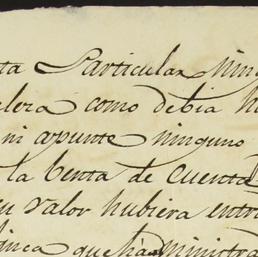 ta Particular ning
como debia h
ni apunte ninguno
la Benta de Cuenta
su valor hubiera entr
que ha ministra